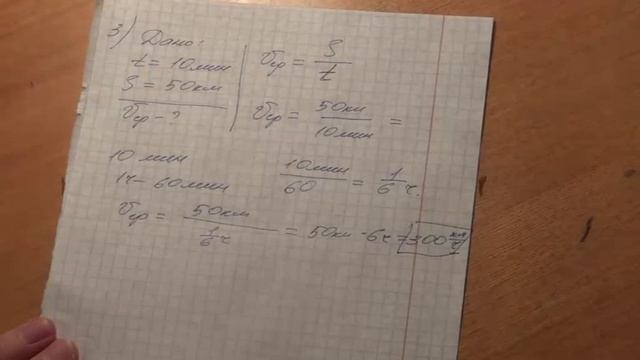 3) Дано:
t = 10 мин
S = 50 км
Vср - ?
Vср = S/t
Vср = 50 км/10 мин =
10 мин
1ч - 60 мин
10 мин/60 = 1/6 ч.
Vср = 50 км/(1/6 ч) = 50 км · 6 ч = 300 км/ч